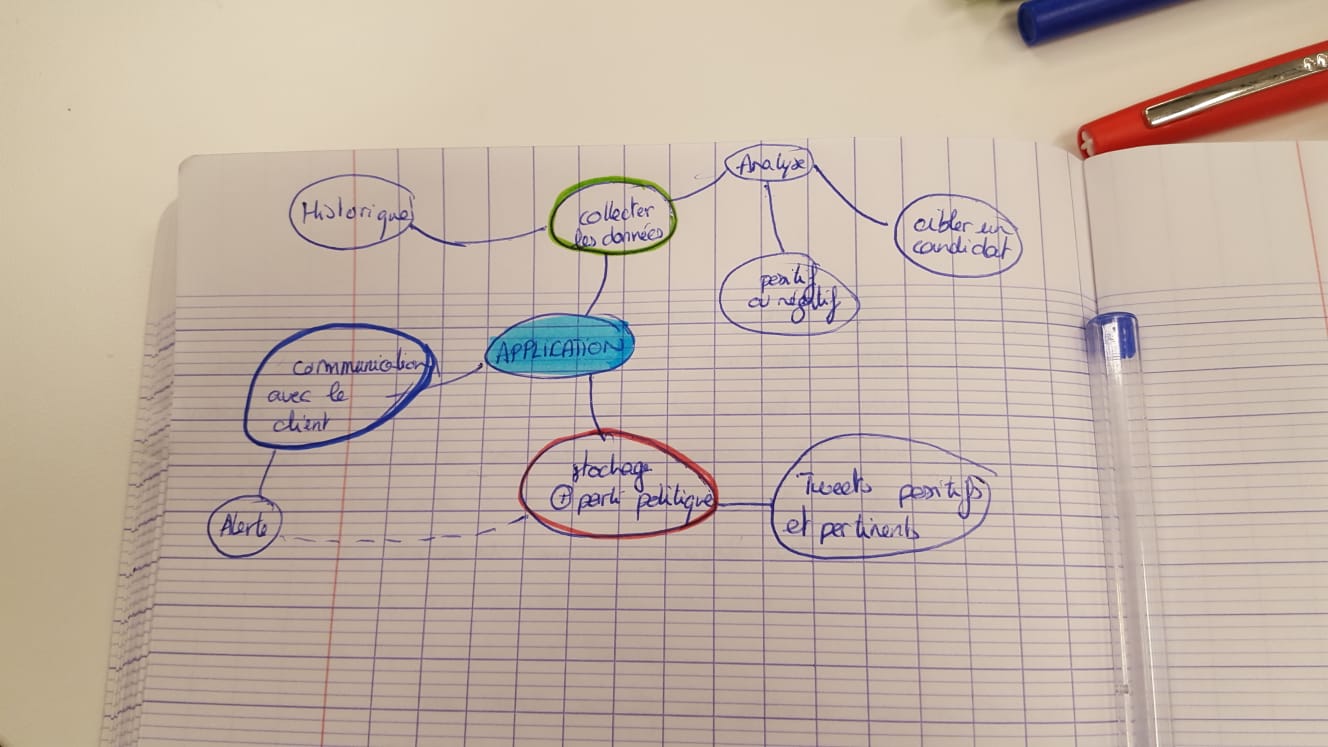 Historique
collecter
les données
Analyse
cibler un
candidat
positif
ou négatif
APPLICATION
communication
avec le
client
stockage
+ parti politique
Tweets positifs
et pertinents
Alerte